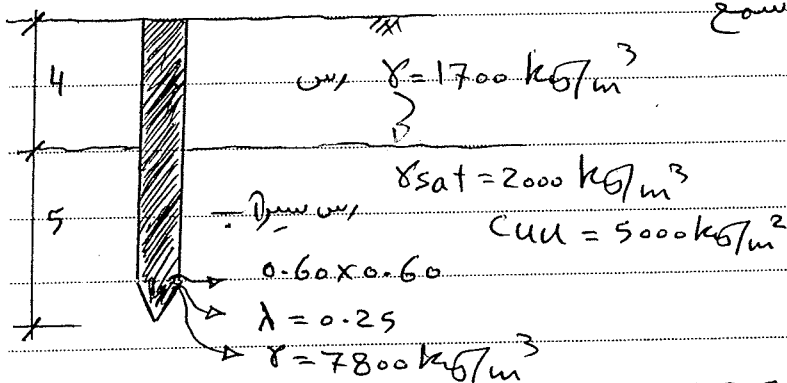 4
رس γ = 1700 kgf/m³
γsat = 2000 kgf/m³
5
Cuu = 5000 kgf/m²
0.60×0.60
λ = 0.25
γ = 7800 kgf/m³